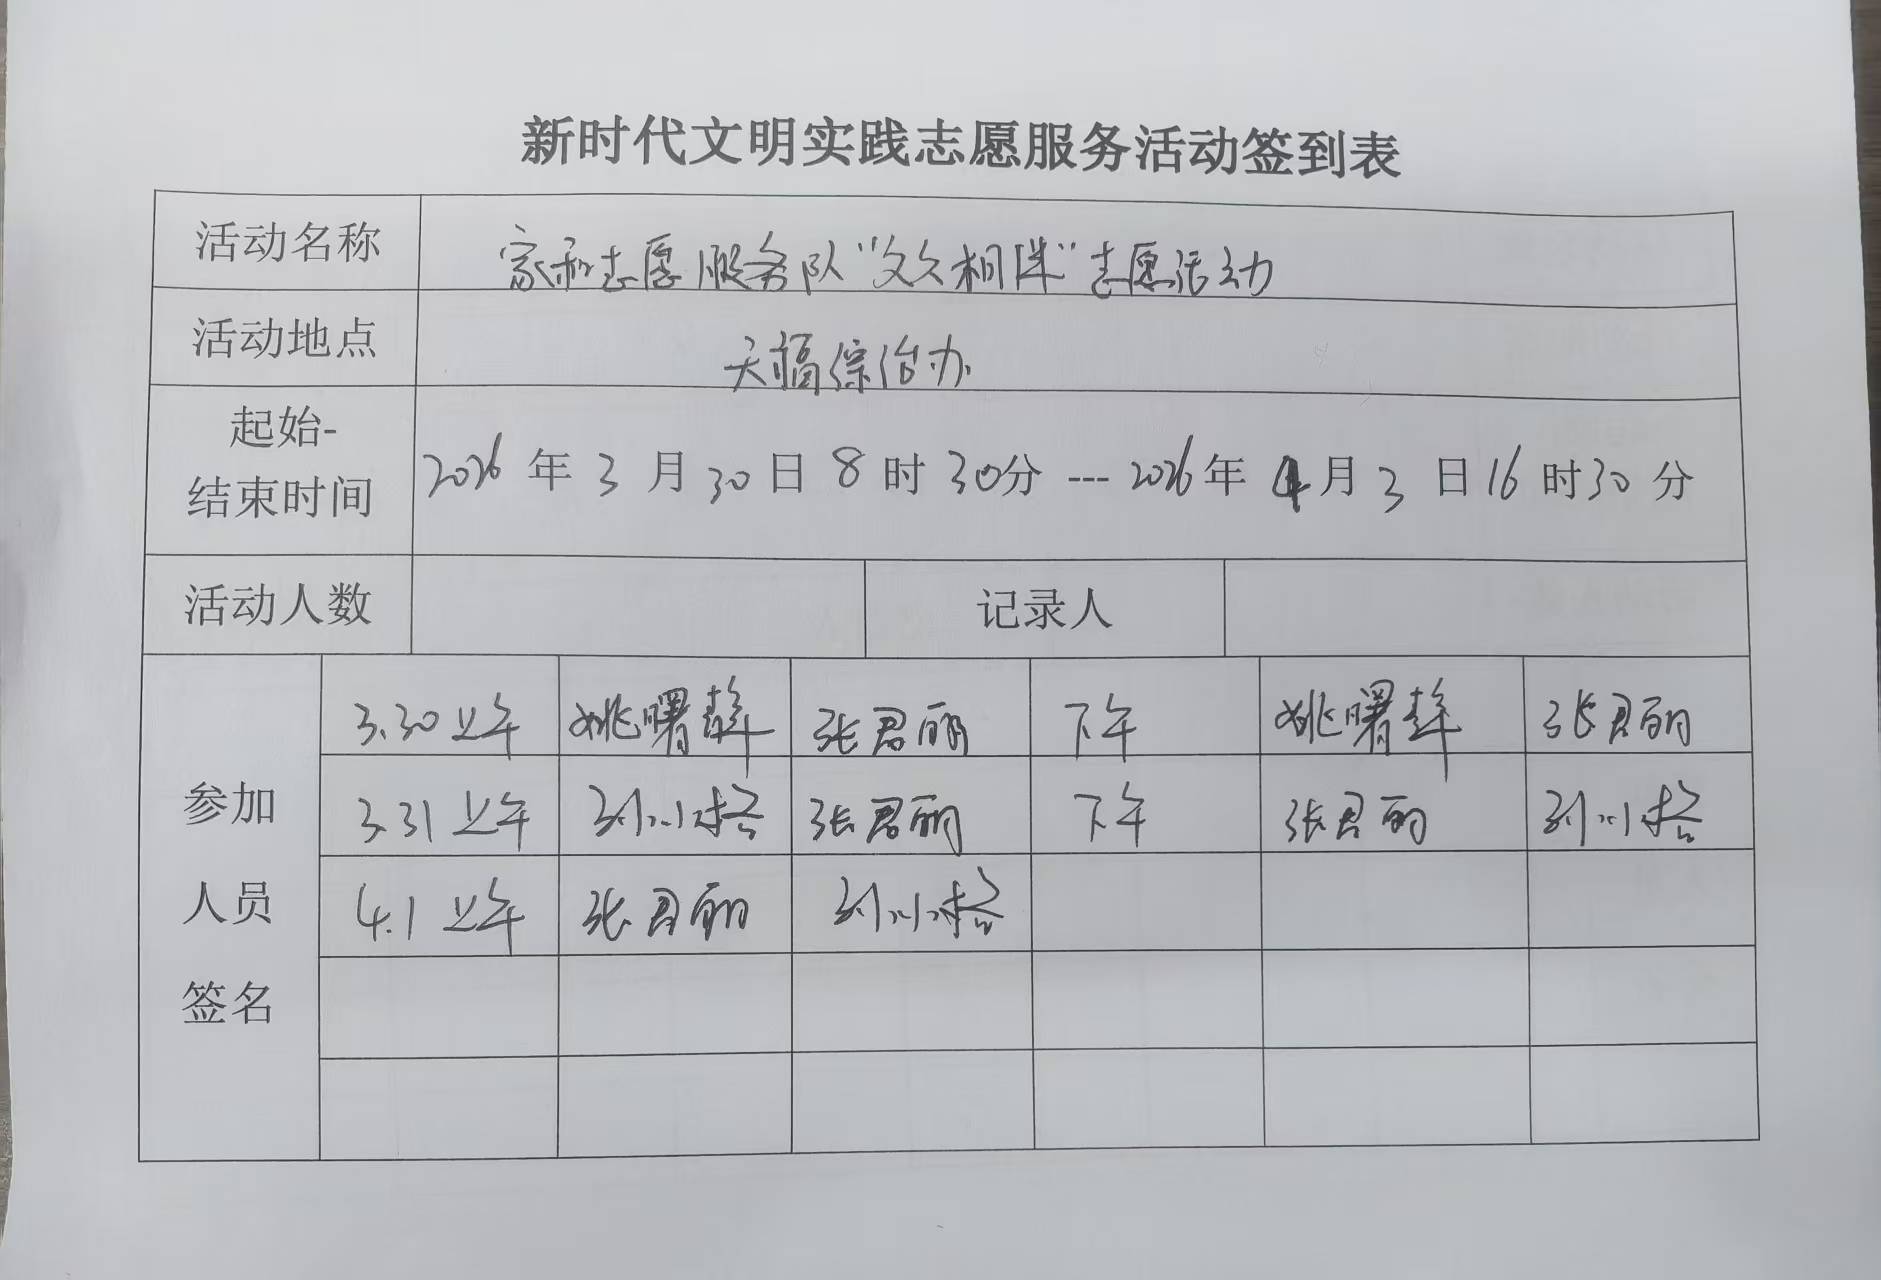 新时代文明实践志愿服务活动签到表
活动名称 家和志愿服务队“文久相伴”志愿活动
活动地点 天福综治办
起始-
结束时间 2026年3月30日8时30分---2026年4月3日16时30分
活动人数 记录人
参加
人员
签名
3.30上午 姚曙 张君丽 下午 姚曙 张君丽
3.31上午 张君丽 下午 张君丽
4.1上午 张君丽